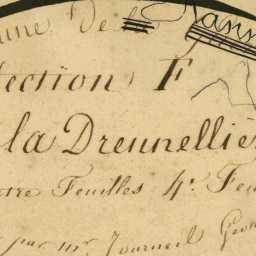 une De Sann
ection F
la Dreunelliè
tre Feuilles 4e. Feu
par mr. Tourneil Géom